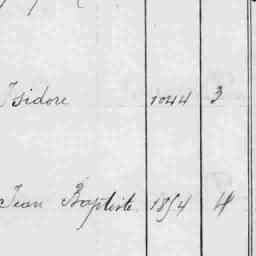 Isidore 1044 3
Jean Baptiste 1854 4